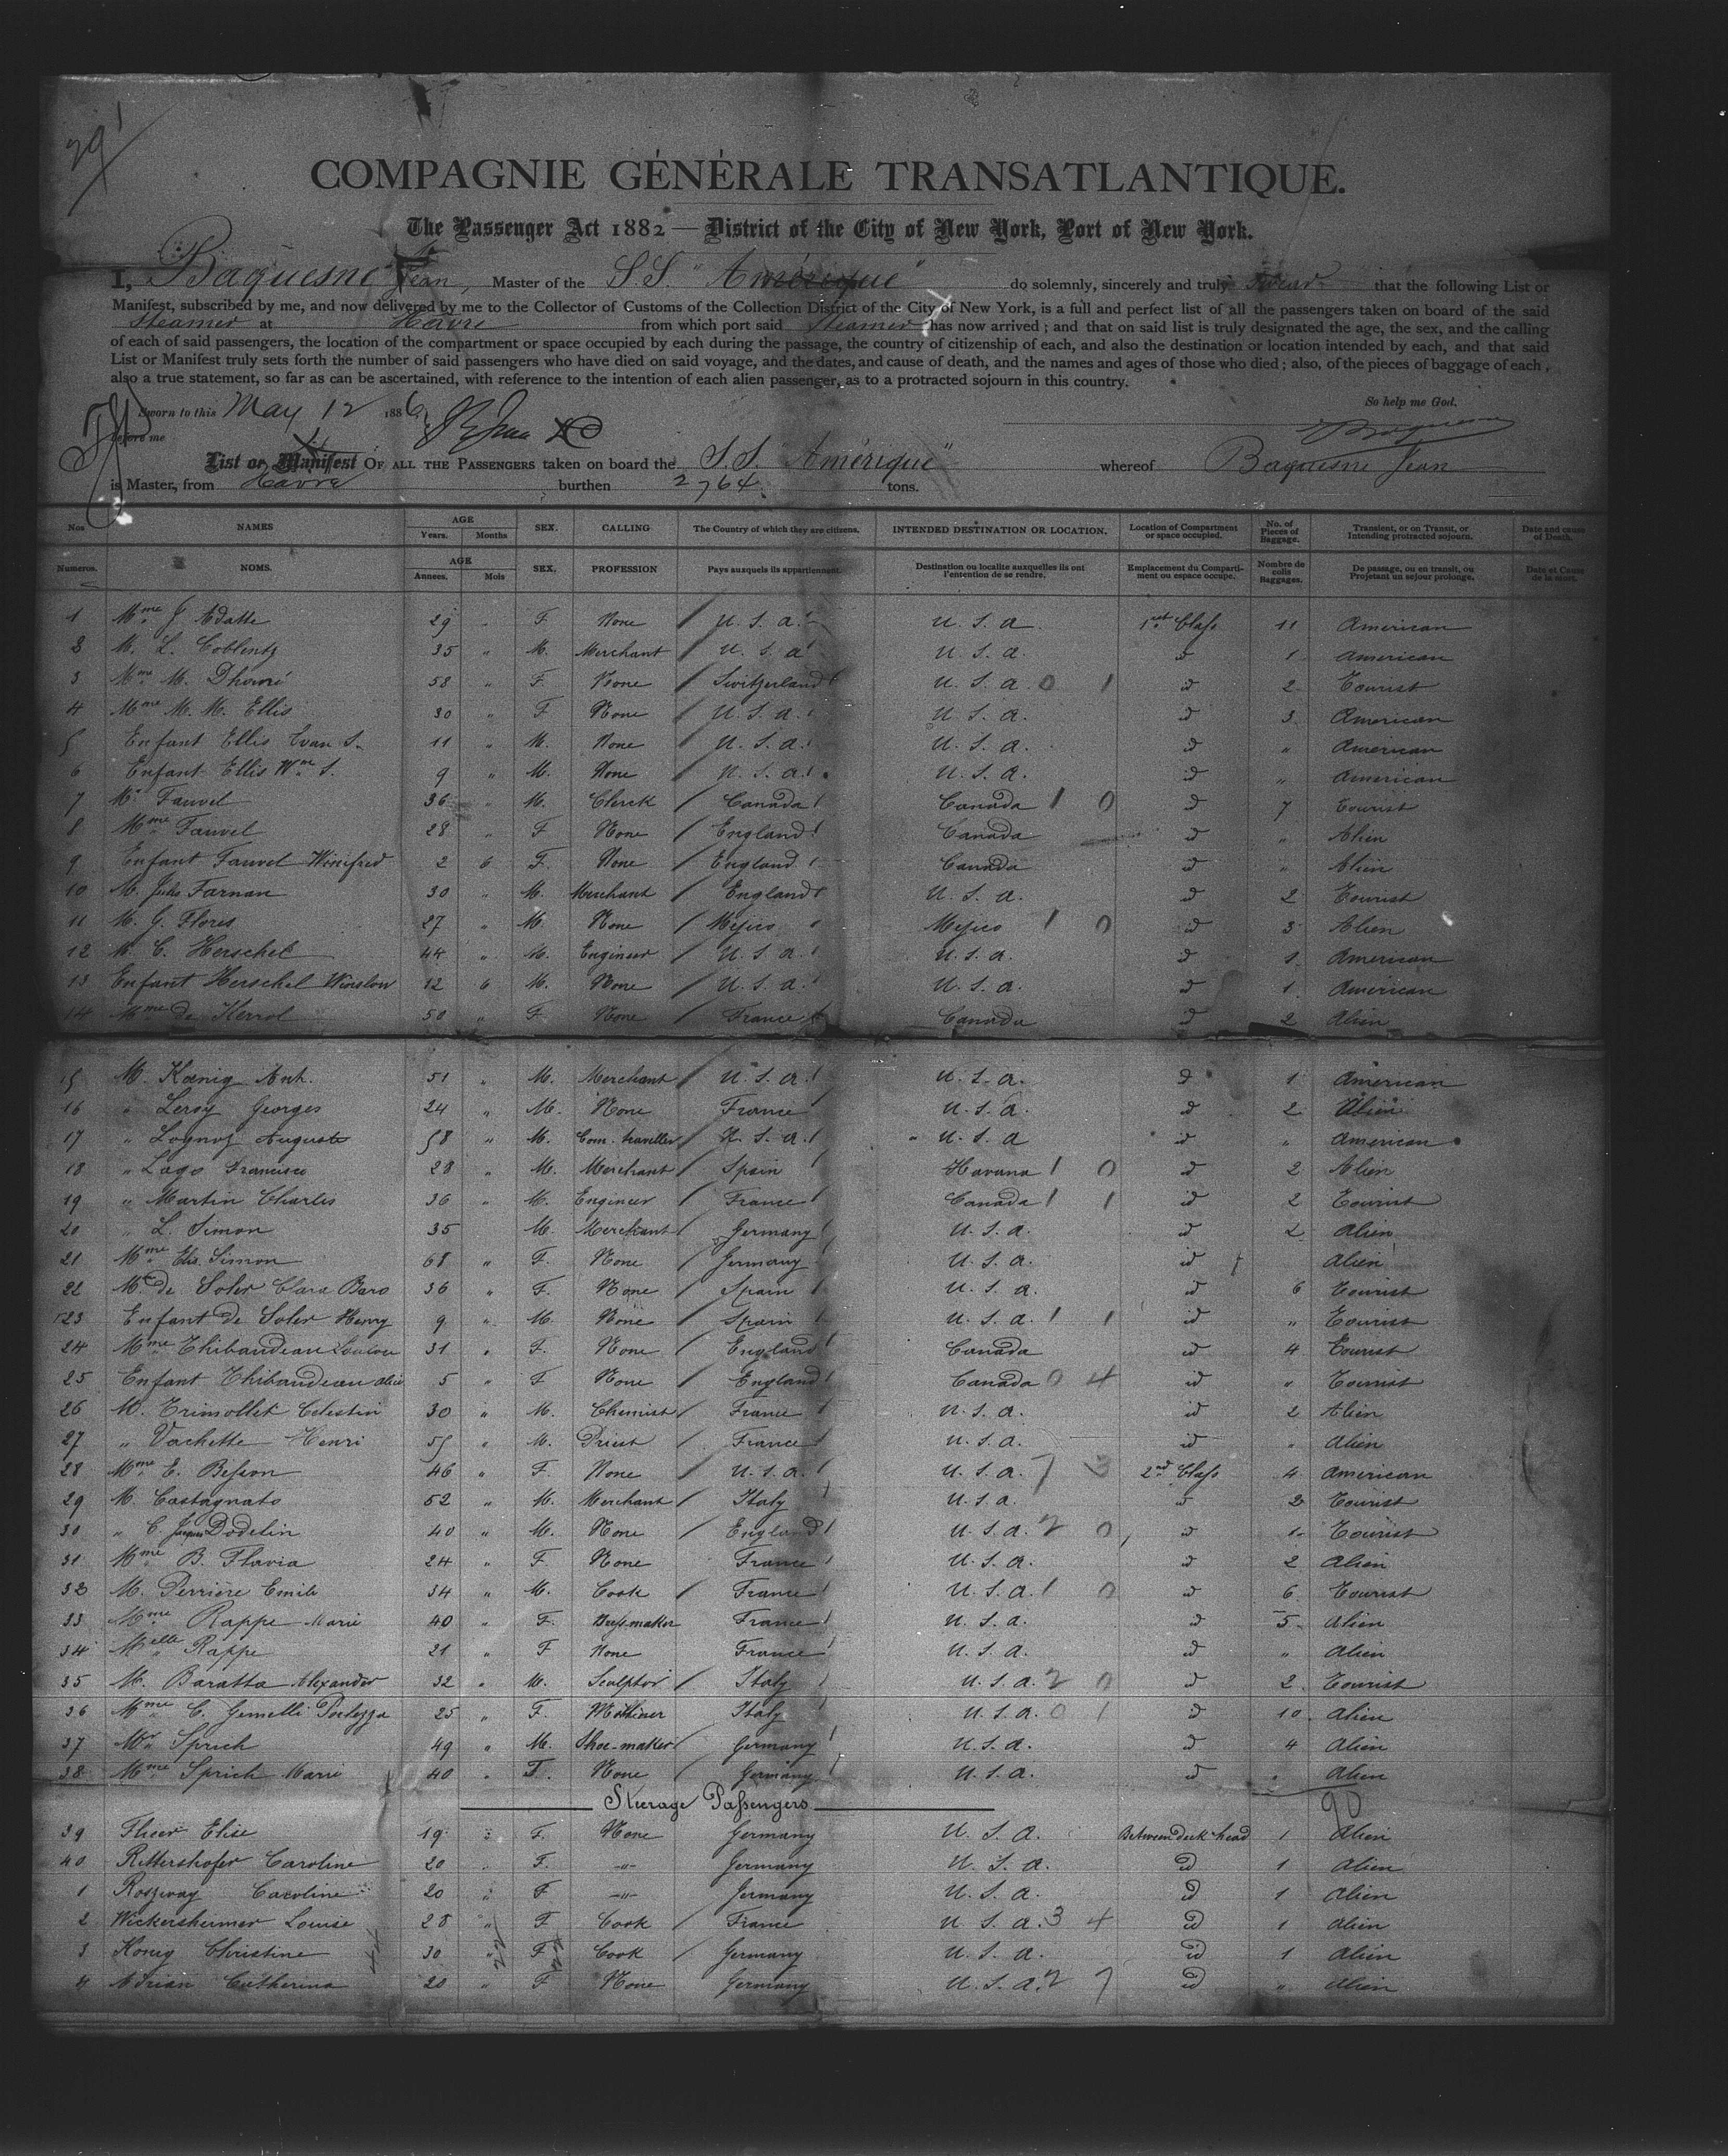 29
COMPAGNIE GÉNÉRALE TRANSATLANTIQUE.
The Passenger Act 1882 — District of the City of New York, Port of New York.
I, Baquesne Jean, Master of the S.S. "Amérique" do solemnly, sincerely and truly swear that the following List or
Manifest, subscribed by me, and now delivered by me to the Collector of Customs of the Collection District of the City of New York, is a full and perfect list of all the passengers taken on board of the said
Steamer at Havre from which port said Steamer has now arrived; and that on said list is truly designated the age, the sex, and the calling
of each of said passengers, the location of the compartment or space occupied by each during the passage, the country of citizenship of each, and also the destination or location intended by each, and that said
List or Manifest truly sets forth the number of said passengers who have died on said voyage, and the dates, and cause of death, and the names and ages of those who died; also, of the pieces of baggage of each,
also a true statement, so far as can be ascertained, with reference to the intention of each alien passenger, as to a protracted sojourn in this country.
Sworn to this May 12 1886 So help me God.
before me Baquesne
List or Manifest OF ALL THE PASSENGERS taken on board the S.S. "Amérique" whereof Baquesne Jean
is Master, from Havre burthen 2764 tons.
Nos NAMES AGE Years. Months SEX. CALLING The Country of which they are citizens. INTENDED DESTINATION OR LOCATION. Location of Compartment or space occupied. No. of Pieces of Baggage. Transient, or on Transit, or Intending protracted sojourn. Date and cause of Death.
Numeros. NOMS. AGE Annees. Mois SEX. PROFESSION Pays auxquels ils appartiennent. Destination ou localite auxquelles ils ont l'entention de se rendre. Emplacement du Compartiment ou espace occupe. Nombre de colis Baggages. De passage, ou en transit, ou Projetant un sejour prolonge. Date et Cause de la mort.
1 Mme J. Adatte 29 " F. None U.S.a. U.S.a 1st Class 11 American
2 M. L. Coblentz 35 " M. Merchant U.S.a U.S.a. id 1 American
3 Mme M. 58 " F. None Switzerland U.S.a. 0 1 id 2 Tourist
4 Mme M. M. Ellis 30 " F None U.S.a. U.S.a. id 3 American
5 Enfant Ellis Evan S. 11 " M. None U.S.a. U.S.a. id " American
6 Enfant Ellis Wm S. 9 " M. None U.S.a. U.S.a. id " American
7 Mr Fauvel 36 " M. Clerck Canada Canada 1 0 id 7 Tourist
8 Mme Fauvel 28 " F None England Canada id " Alien
9 Enfant Fauvel Winifred 2 6 F. None England Canada id " Alien
10 M. Jules Farnan 30 " M. Merchant England U.S.a. id 2 Tourist
11 M. G. Flores 27 " M None Mejico Mejico 1 0 id 3 Alien
12 M. C. Herschel 44 " M. Engineer U.S.a. U.S.a. id 1 American
13 Enfant Herschel Winslow 12 6 M. None U.S.a. U.S.a. id 1 American
14 Mme de Kerrol 50 " F. None France Canada id 2 Alien
15 M. Kœnig Ant. 51 " M. Merchant U.S.a. U.S.a. id 1 American
16 " Leroy Georges 24 " M. None France U.S.a. id 2 Alien
17 " Auguste 58 " M. Com. traveller U.S.a. " U.S.a id " American
18 " Lago Francisco 28 " M. Merchant Spain Havana 1 0 id 2 Alien
19 " Martin Charles 36 " M. Engineer France Canada 1 1 id 2 Tourist
20 " L. Simon 35 M. Merchant Germany U.S.a. id 2 Alien
21 Mme Simon 68 " F. None Germany U.S.a. id Alien
22 Me de Soler Clara Baro 36 " F. None Spain U.S.a. id 6 Tourist
23 Enfant de Soler Henry 9 " M. None Spain U.S.a. 1 1 id " Tourist
24 Mme Thibaudeau Loulou 31 " F. None England Canada id 4 Tourist
25 Enfant Thibaudeau Alice 5 " F None England Canada 0 4 id " Tourist
26 M. Trimollet Celestin 30 " M. Chemist France U.S.a. id 2 Alien
27 " Vachette Henri 55 " M. Priest France U.S.a. id " Alien
28 Mme E. Besson 46 " F. None U.S.a. U.S.a. 7 3 2nd Class 4 American
29 M. Castagnato 52 " M. Merchant Italy U.S.a. id 2 Tourist
30 " C. Dodelin 40 " M. None England U.S.a. 2 0 id 1 Tourist
31 Mme B. Flavia 24 " F. None France U.S.a. id 2 Alien
32 M. Perriere Emile 34 " M. Cook France U.S.a. 1 0 id 6 Tourist
33 Mme Rappe Marie 40 " F. Dressmaker France U.S.a. id 5 Alien
34 Melle Rappe 21 " F None France U.S.a. id " Alien
35 M. Baratta Alexander 32 " M. Sculptor Italy U.S.a. 2 0 id 2 Tourist
36 Mme C. Gemelli 25 " F. Milliner Italy U.S.a. 0 1 id 10 Alien
37 Mr Sprich 49 " M. Shoe-maker Germany U.S.a. id 4 Alien
38 Mme Sprich Marie 40 " F. None Germany U.S.a. id " Alien
Steerage Passengers 90
39 Elise 19 " F. None Germany U.S.a. Between deck head 1 Alien
40 Rittershofer Caroline 20 " F. —"— Germany U.S.a. id 1 Alien
1 Caroline 20 " F —"— Germany U.S.a. id 1 Alien
2 Wickersheimer Louise 28 " F Cook France U.S.a. 3 4 id 1 Alien
3 Konig Christine 30 " F Cook Germany U.S.a. id 1 Alien
4 Adrian Catherina 20 " F None Germany U.S.a. 2 7 id " Alien